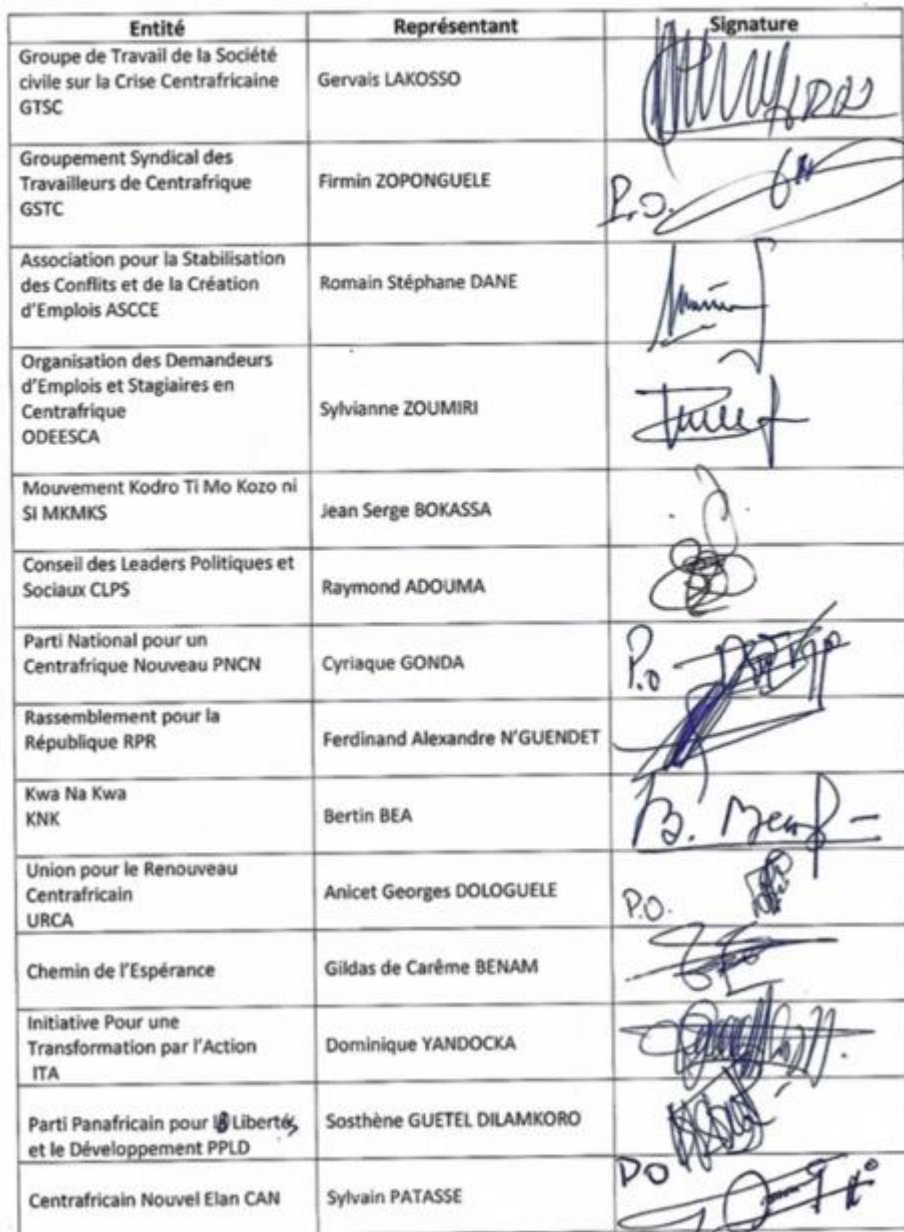 Entité Représentant Signature
Groupe de Travail de la Société
civile sur la Crise Centrafricaine
GTSC
Gervais LAKOSSO
Groupement Syndical des
Travailleurs de Centrafrique
GSTC
Firmin ZOPONGUELE
P.O.
Association pour la Stabilisation
des Conflits et de la Création
d'Emplois ASCCE
Romain Stéphane DANE
Organisation des Demandeurs
d'Emplois et Stagiaires en
Centrafrique
ODEESCA
Sylvianne ZOUMIRI
Mouvement Kodro Ti Mo Kozo ni
SI MKMKS
Jean Serge BOKASSA
Conseil des Leaders Politiques et
Sociaux CLPS
Raymond ADOUMA
Parti National pour un
Centrafrique Nouveau PNCN
Cyriaque GONDA
P.o
Rassemblement pour la
République RPR
Ferdinand Alexandre N'GUENDET
Kwa Na Kwa
KNK
Bertin BEA
Union pour le Renouveau
Centrafricain
URCA
Anicet Georges DOLOGUELE
P.O.
Chemin de l'Espérance
Gildas de Carême BENAM
Initiative Pour une
Transformation par l'Action
ITA
Dominique YANDOCKA
Parti Panafricain pour Libertés
et le Développement PPLD
Sosthène GUETEL DILAMKORO
Centrafricain Nouvel Elan CAN
Sylvain PATASSE
PO